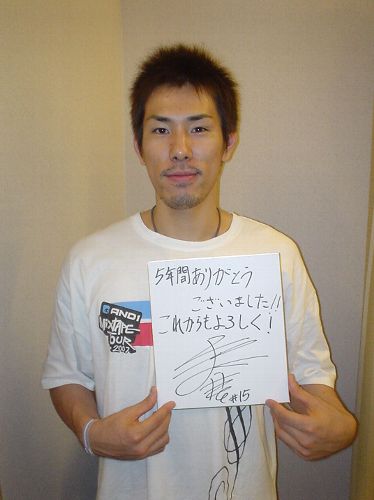 5年間ありがとう
ございました!!
これからもよろしく!
#15
AND1
MIXTAPE
TOUR
2007